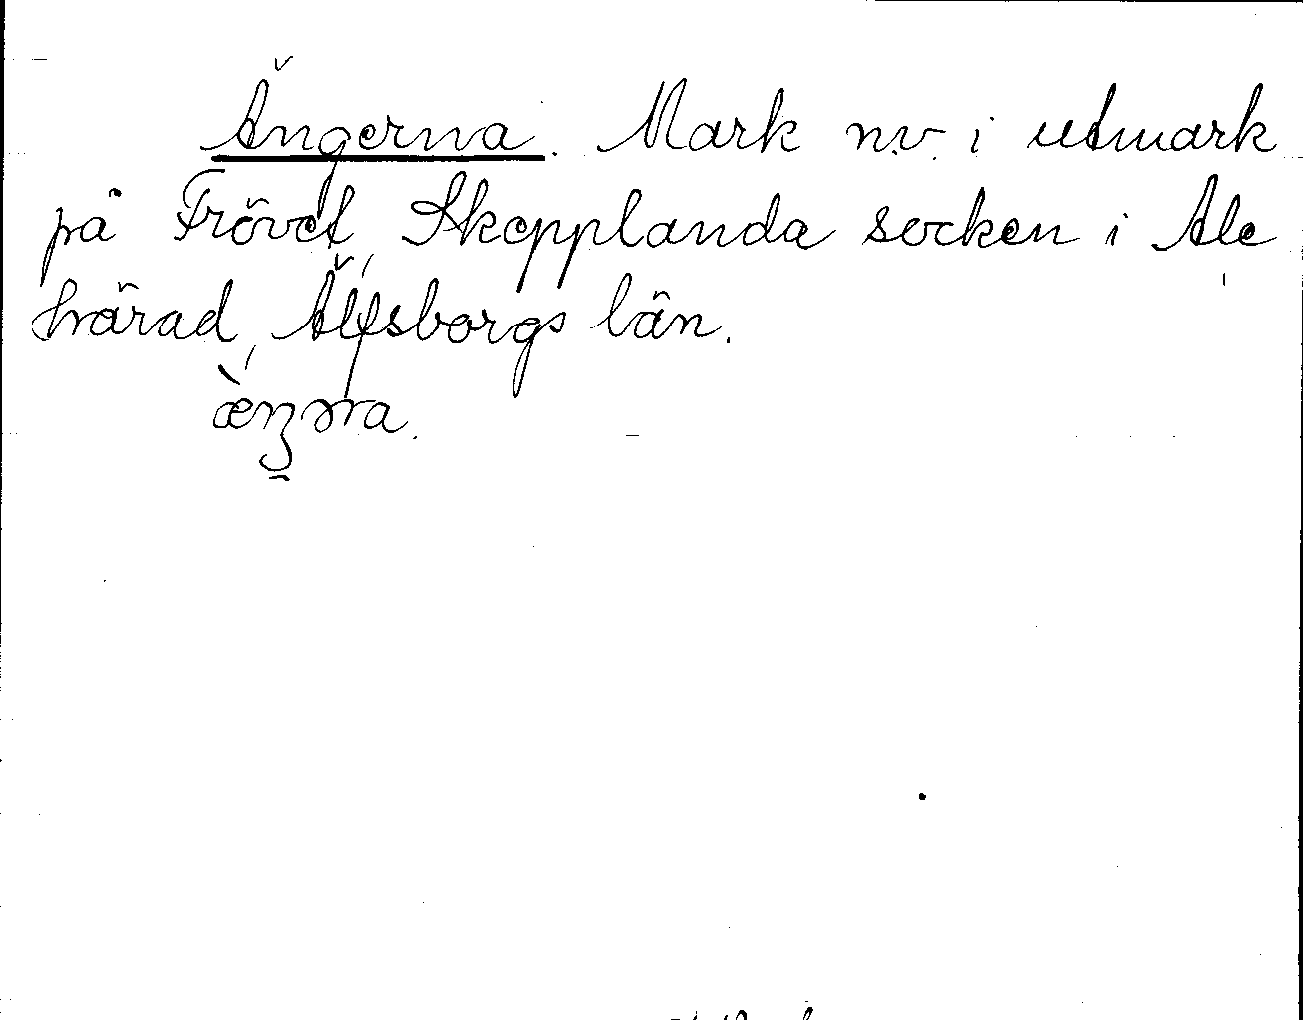 Ängerna. Mark n.v. i utmark
på Frövet, Skepplanda socken i Ale
härad, Älfsborgs län.